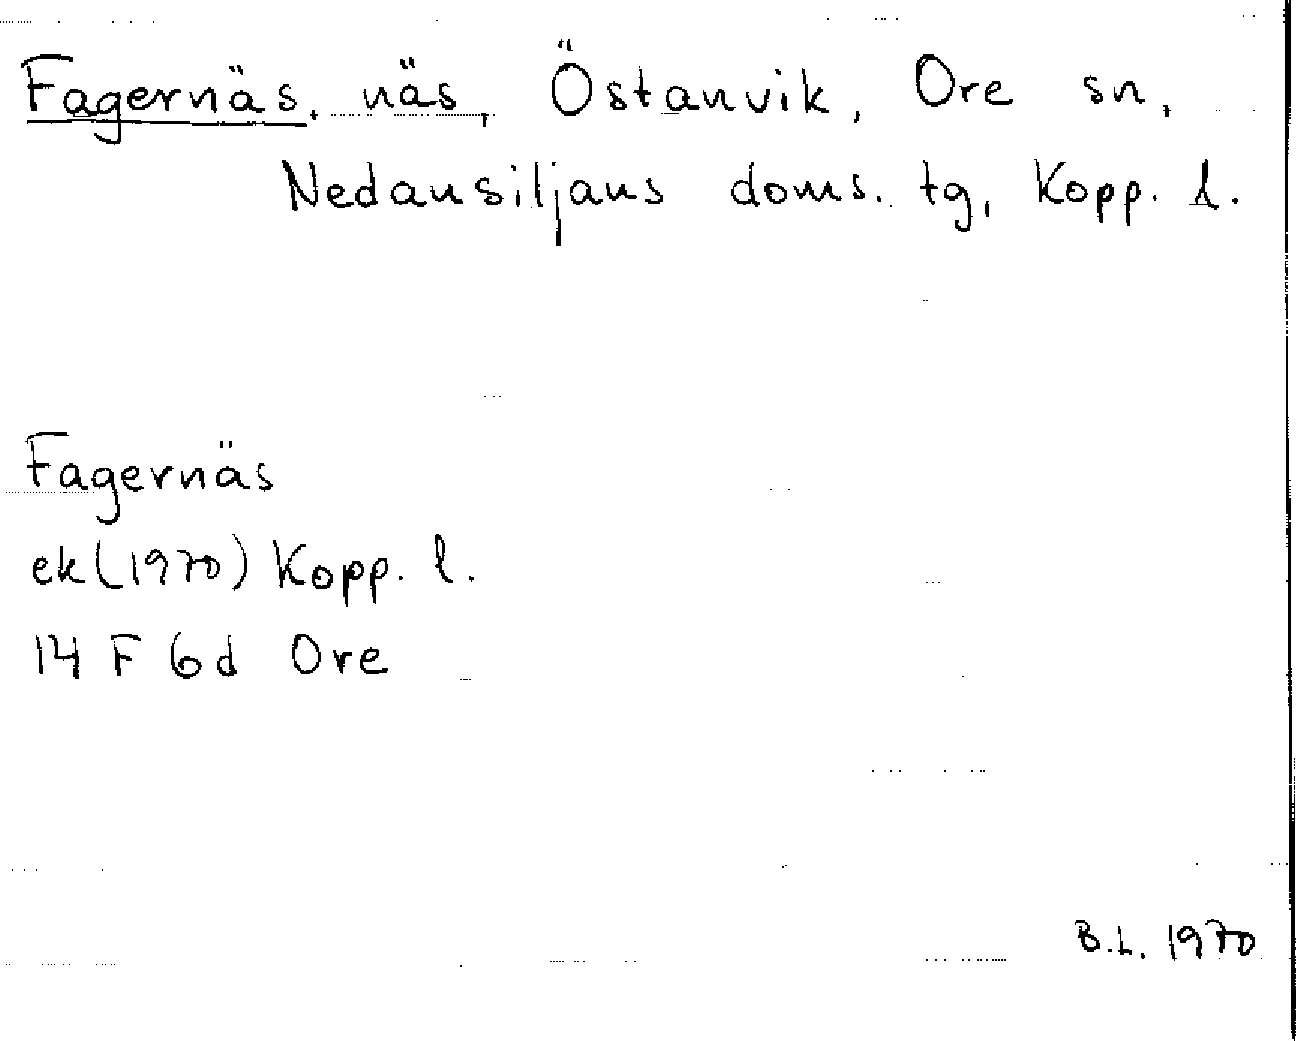 Fagernäs, näs, Östanvik, Ore sn,
Nedansiljans doms. tg, Kopp. l.
Fagernäs
ek (1970) Kopp. l.
14 F 6d Ore
B.L. 1970